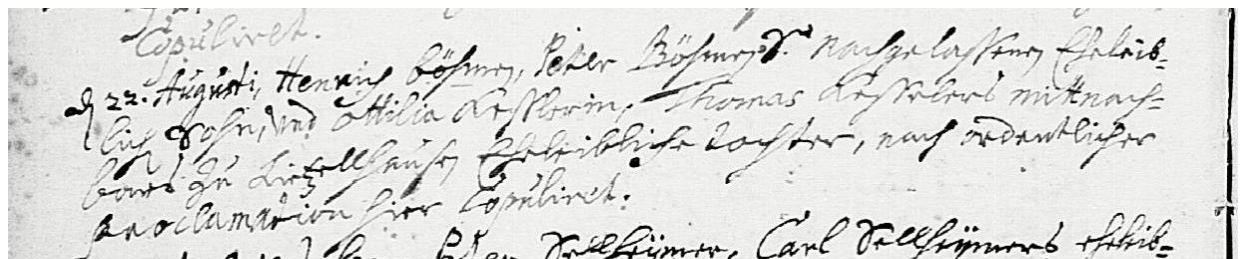 Copuliret.
d 22. Augusti, Henrich Böhmen, Peter Böhmens S. nachgelassenen Eheleib-
lich Sohn, und Ottilia Kesslerin, Thomas Kesselers mittnach-
bars zu Kirtzellhausen Eheleibliche Tochter, nach ordentlicher
proclamation hier Copuliret.
Sellheymer, Carl Sellheymers eheleib-